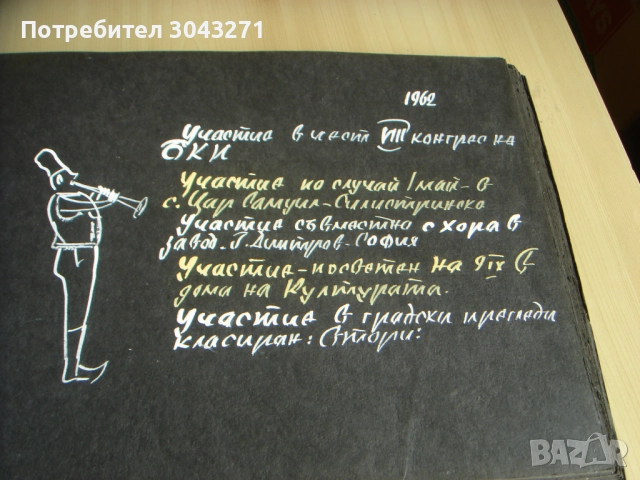 Потребител 3043271
1962
Участие в чест VIII конгрес на
БКП
Участие по случай 1 май - в
с. Цар Самуил - Силистринско
Участие съвместно с хора в
завод. Г. Димитров - София
Участие - посветен на 9 IX в
дома на Културата.
Участие в градски прегледи
класиран: Втори:
BAZAR